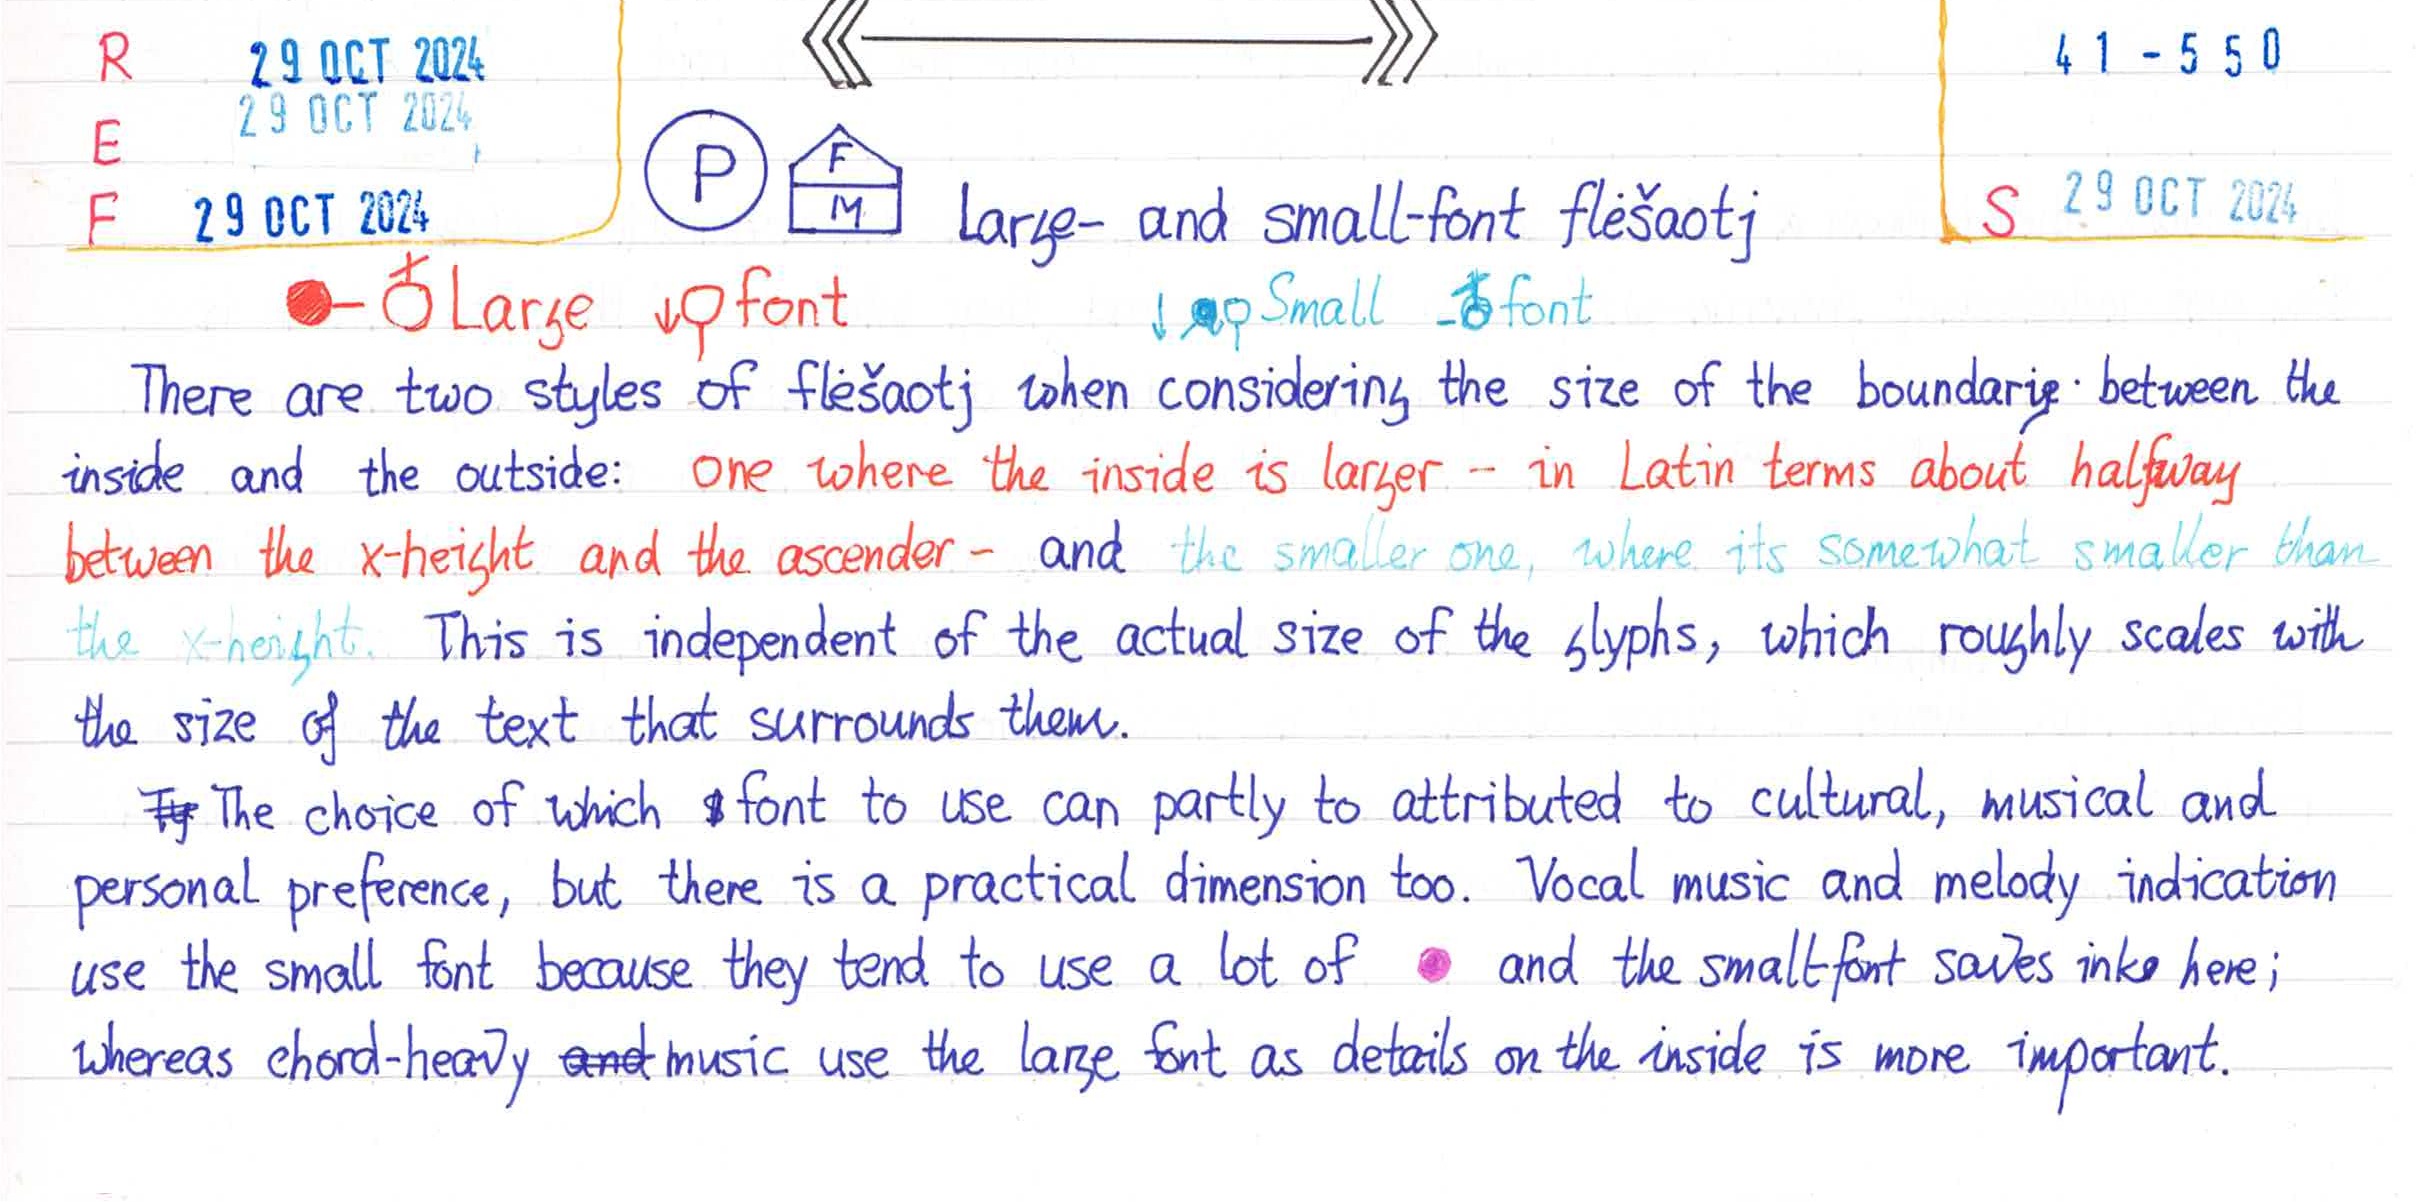 R 29 OCT 2024 41-550
29 OCT 2024
E
P F M Large- and small-font flėšaotj
F 29 OCT 2024 S 29 OCT 2024
Large font Small font
There are two styles of flėšaotj when considering the size of the boundary between the
inside and the outside: one where the inside is larger – in Latin terms about halfway
between the x-height and the ascender – and the smaller one, where its somewhat smaller than
the x-height. This is independent of the actual size of the glyphs, which roughly scales with
the size of the text that surrounds them.
The choice of which font to use can partly to attributed to cultural, musical and
personal preference, but there is a practical dimension too. Vocal music and melody indication
use the small font because they tend to use a lot of and the small font saves ink here;
whereas chord-heavy and music use the large font as details on the inside is more important.